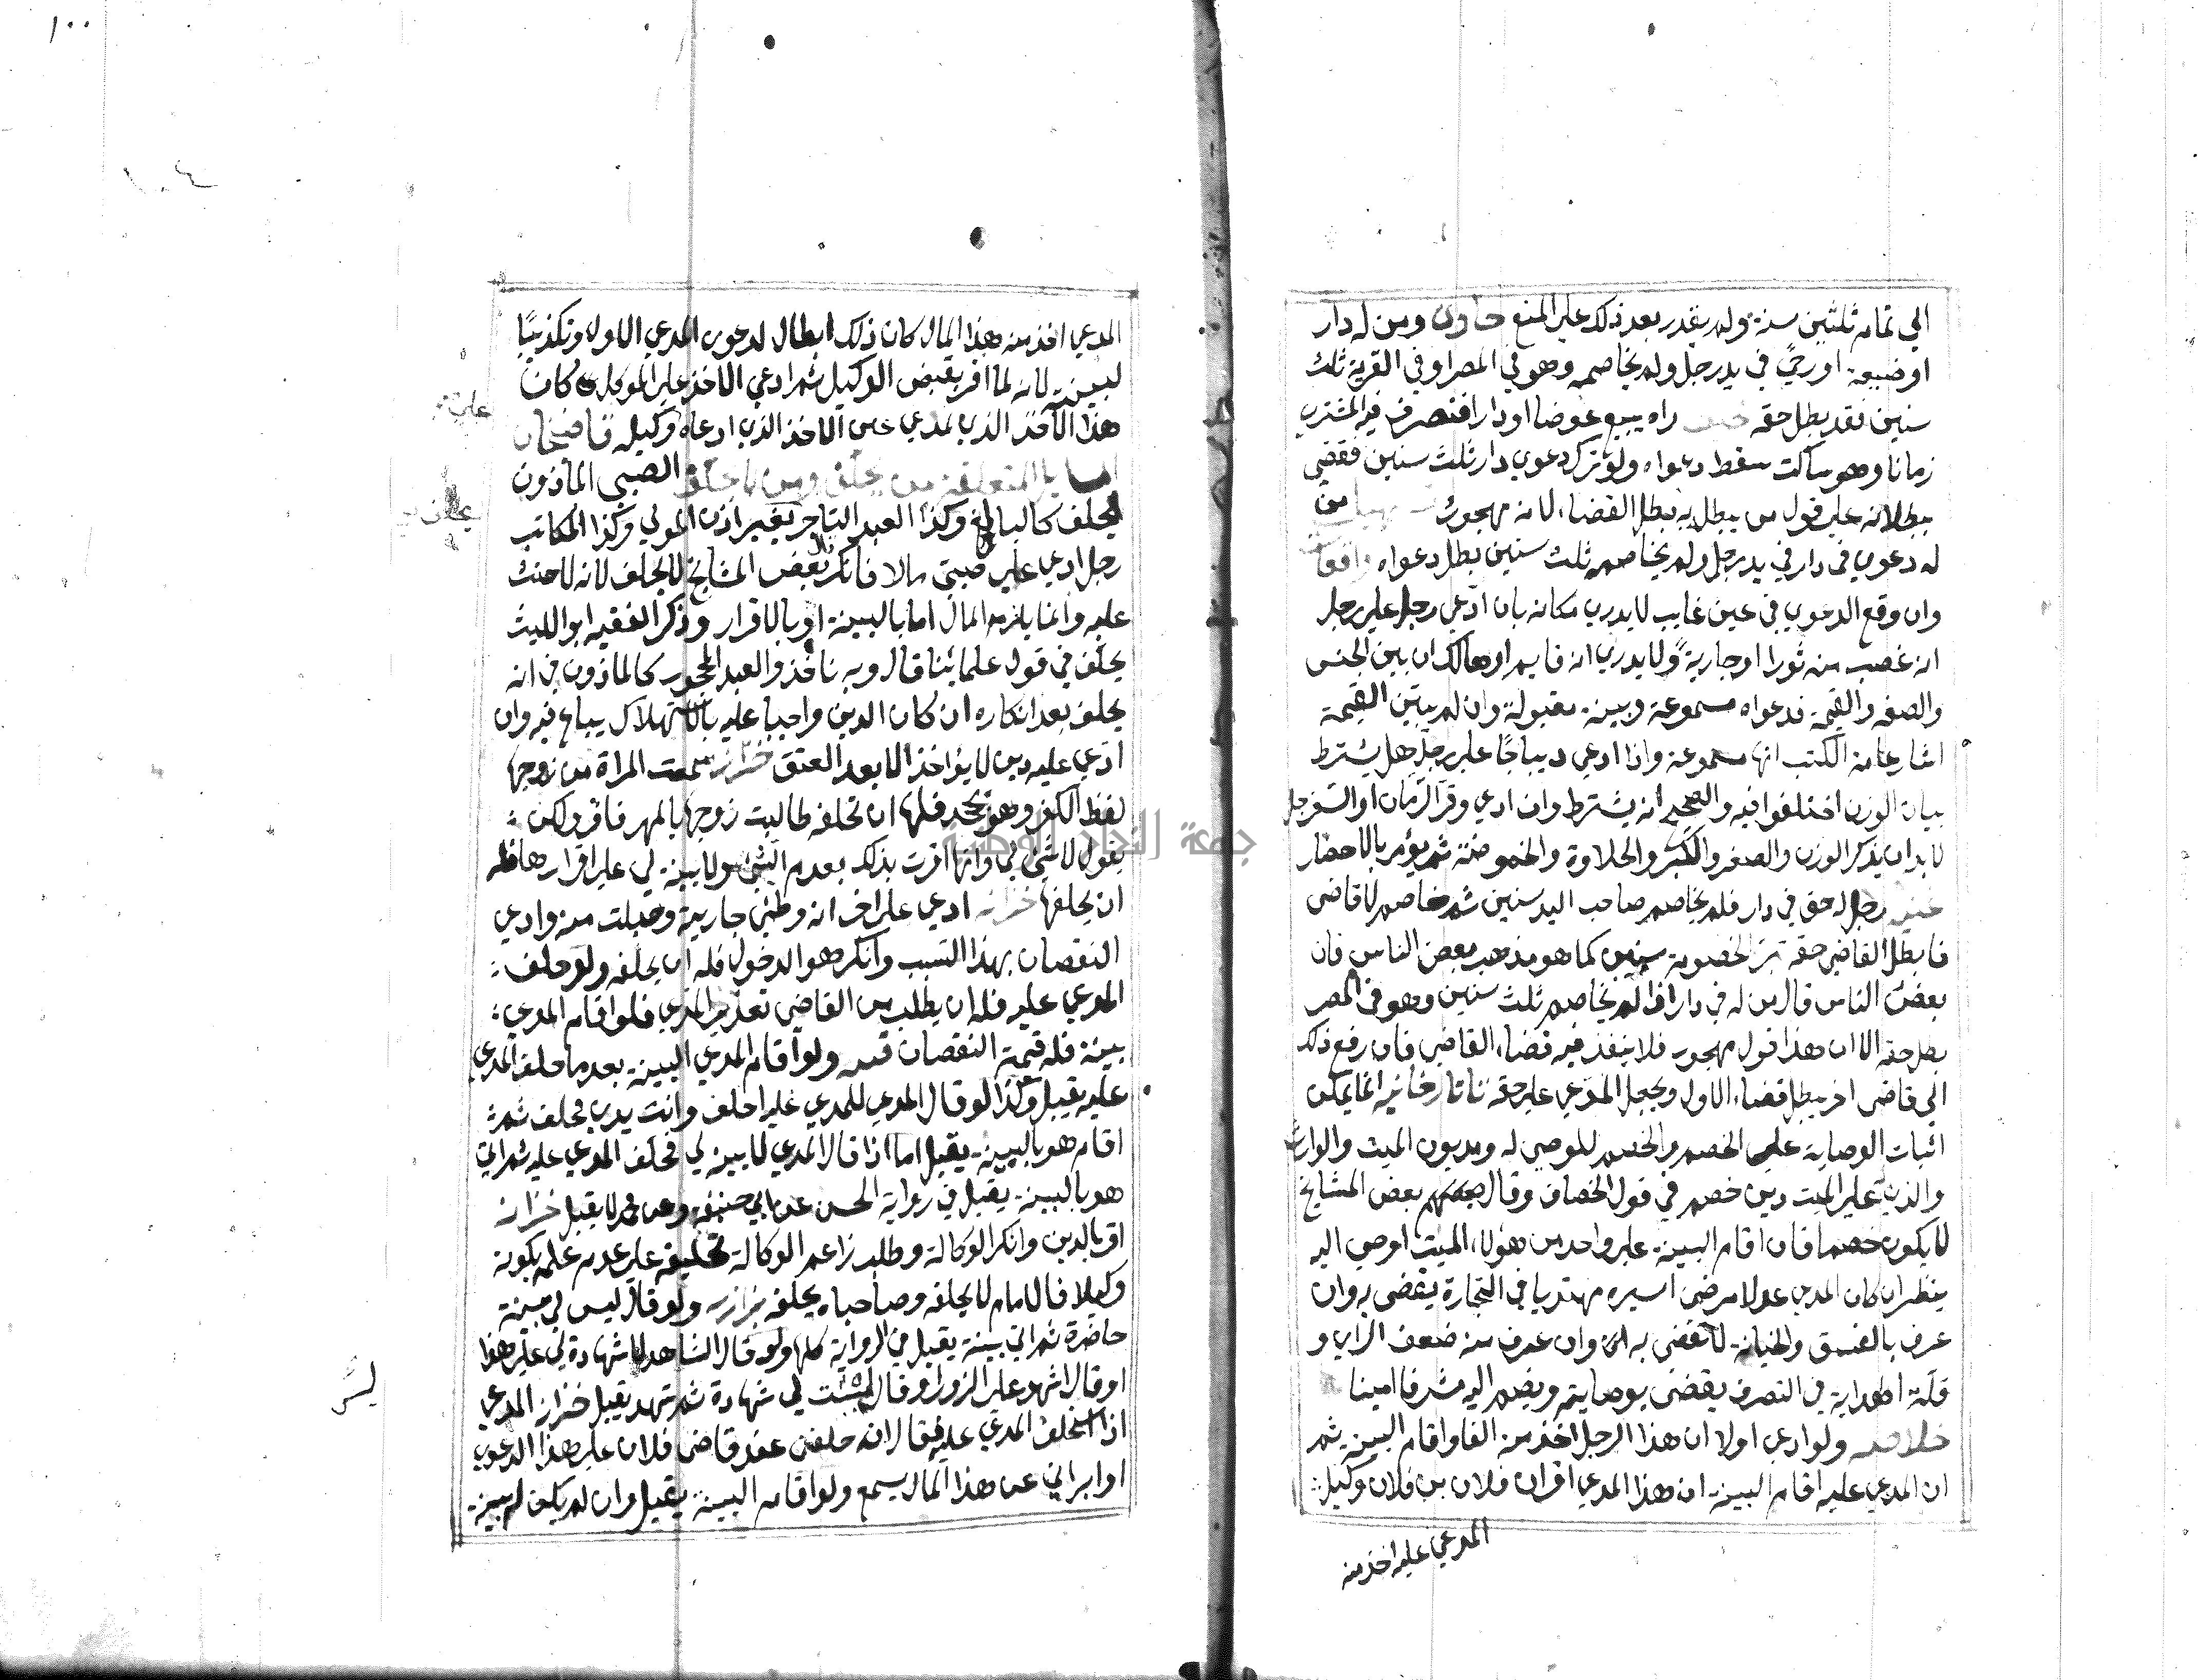 الي تمام ثلثين سنة ولم يقدر بعد ذلك علي المنع حاوي ومن له دار
او ضيعة او رحي في يد رجل ولم يخاصمه وهو في المصر او في القرية ثلث
سنين فقد بطل حقه راه يبيع عوضا او دارا فتصرف فيه المشتري
زمانا وهو ساكت سقط دعواه ولو ترك دعوي دار ثلث سنين فقضي
ببطلانه علي قول من يبطل به يبطل القضاء لانه مهجور من
له دعوي في دار في يد رجل ولم يخاصمه ثلث سنين بطل دعواه
وان وقع الدعوي في عين غايب لا يدري مكانه بان ادعي رجل علي رجل
انه غصب منه ثورا او جارية ولا يدري انه قايم او هالك ان بين الجنس
والصفة والقيمة فدعواه مسموعة وبينته مقبولة وان لم يبين القيمة
اشار عامة الكتب انها مسموعة واذا ادعي ديباجا علي رجل هل يشترط
بيان الوزن اختلفوا فيه والصحيح انه يشترط وان ادعي وقر الرمان او السفرجل
لا بد ان يذكر الوزن والصغر والكبر والحلاوة والحموضة ثم يؤمر بالاحضار
رجل له حق في دار فلم يخاصم صاحب اليد سنين ثم خاصم لا قاضي
فابطل القاضي حقه بترك الخصومة سنين كما هو مذهب بعض الناس فان
بعض الناس قال من له في دار اذا لم يخاصم ثلث سنين وهو في المصر
بطل حقه الا ان هذا قول مهجور فلا ينفذ فيه قضاء القاضي فان رفع ذلك
الي قاضي اخر يبطل قضاء الاول ويجعل المدعي علي حقه تاتارخانيه انما يمكن
اثبات الوصاية علي الخصم والخصم للوصي له ومديون الميت والوارث
والذي له علي الميت دين خصم في قول الخصاف وقال بعضهم بعض المشايخ
لا يكون خصما فان اقام البينة علي واحد من هؤلاء الميت اوصي اليه
ينظر ان كان المدعي عدلا مرضي السيرة مهتديا في التجارة يقضي به وان
عرف بالفسق والخيانة لا يقضي به وان عرف منه ضعف الراي و
قلة اهداية في التصرف يقضي بوصايته ويضم اليه مشرفا امينا
خلاصه ولو ادعي اولا ان هذا الرجل اخذ منه الفا واقام البينة ثم
ان المدعي عليه اقام البينة ان هذا المدعي اقر ان فلان بن فلان وكيل
المدعي عليه اخذ منه
المدعي اخذ منه هذا المال كان ذلك ابطال لدعوي المدعي الاول وتكذيبا
لبينته لانه لما اقر بقبض الوكيل ثم ادعي الاخذ علي الموكل كان
هذا الاخذ الذي يدعي عين الاخذ الذي ادعاه وكيله قاضيخان
المتعلقة من يحلف ومن لا يحلف الصبي الماذون
يحلف كالبالغ وكذا العبد التاجر بغير اذن المولي وكذا المكاتب
رجل ادعي علي صبي مالا فانكر قال بعض المشايخ لا يحلف لانه لا حنث
عليه وانما يلزمه المال اما بالبينة او بالاقرار وذكر الفقيه ابو الليث
يحلف في قول علمائنا قال وبه ناخذ والعبد المحجور كالماذون في انه
يحلف بعد انكاره ان كان الدين واجبا عليه بالاستهلاك يباع فيه وان
ادعي عليه دين لا يؤاخذ الا بعد العتق خزانه سمعت المراة من زوجها
لفظ الكفر وهو يجحد فلها ان تحلفه طالبت زوجها بالمهر فاقر ولكن
يقول لا شئ لي وانها اقرت بذلك بعدم الشئ ولا بينة لي علي اقرارها فله
ان يحلفها خزانه ادعي علي اخر انه وطئ جارية وحبلت منه وادعي
النقصان بهذا السبب وانكر هو الدخول فله ان يحلفه ولو حلف
المدعي عليه فله ان يطلب من القاضي تعذير المدعي فلو اقام المدعي
بينة فله قيمة النقصان ولو اقام المدعي البينة بعد ما حلف المدعي
عليه يقبل وكذا لو قال المدعي للمدعي عليه احلف وانت بري فحلف ثم
اقام هو بالبينة يقبل اما اذا قال المدعي لا بينة لي فحلف المدعي عليه ثم اتي
هو بالبينة يقبل في رواية الحسن عن ابي حنيفة وعن محمد لا يقبل خزانه
اقر بالدين وانكر الوكالة وطلب زاعم الوكالة تحليفه علي عدم علمه بكونه
وكيلا فالامام لا يحلفه وصاحباه يحلفه بزازيه ولو قال ليس لي بينة
حاضرة ثم اتي بينة يقبل في الرواية كلها ولو قال الشاهد لا شهادة لي علي هذا
او قال اشهد علي الزور او قال ليست لي شهادة ثم شهد يقبل خزانه المدعي
اذا استحلف المدعي عليه فقال انه حلفني عند قاضي فلان علي هذا الدعوي
او ابراني عن هذا المال يسمع ولو اقام البينة يقبل وان لم يكن له بينة
١٠٠
جامعة النجاح الوطنية